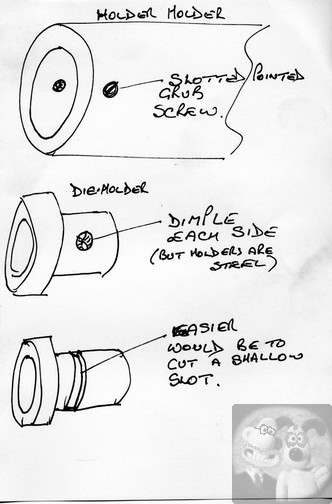 HOLDER HOLDER
SLOTTED/POINTED
GRUB
SCREW.
DIE-HOLDER
DIMPLE
EACH SIDE
(BUT HOLDERS ARE
STEEL)
EASIER
WOULD BE TO
CUT A SHALLOW
SLOT.